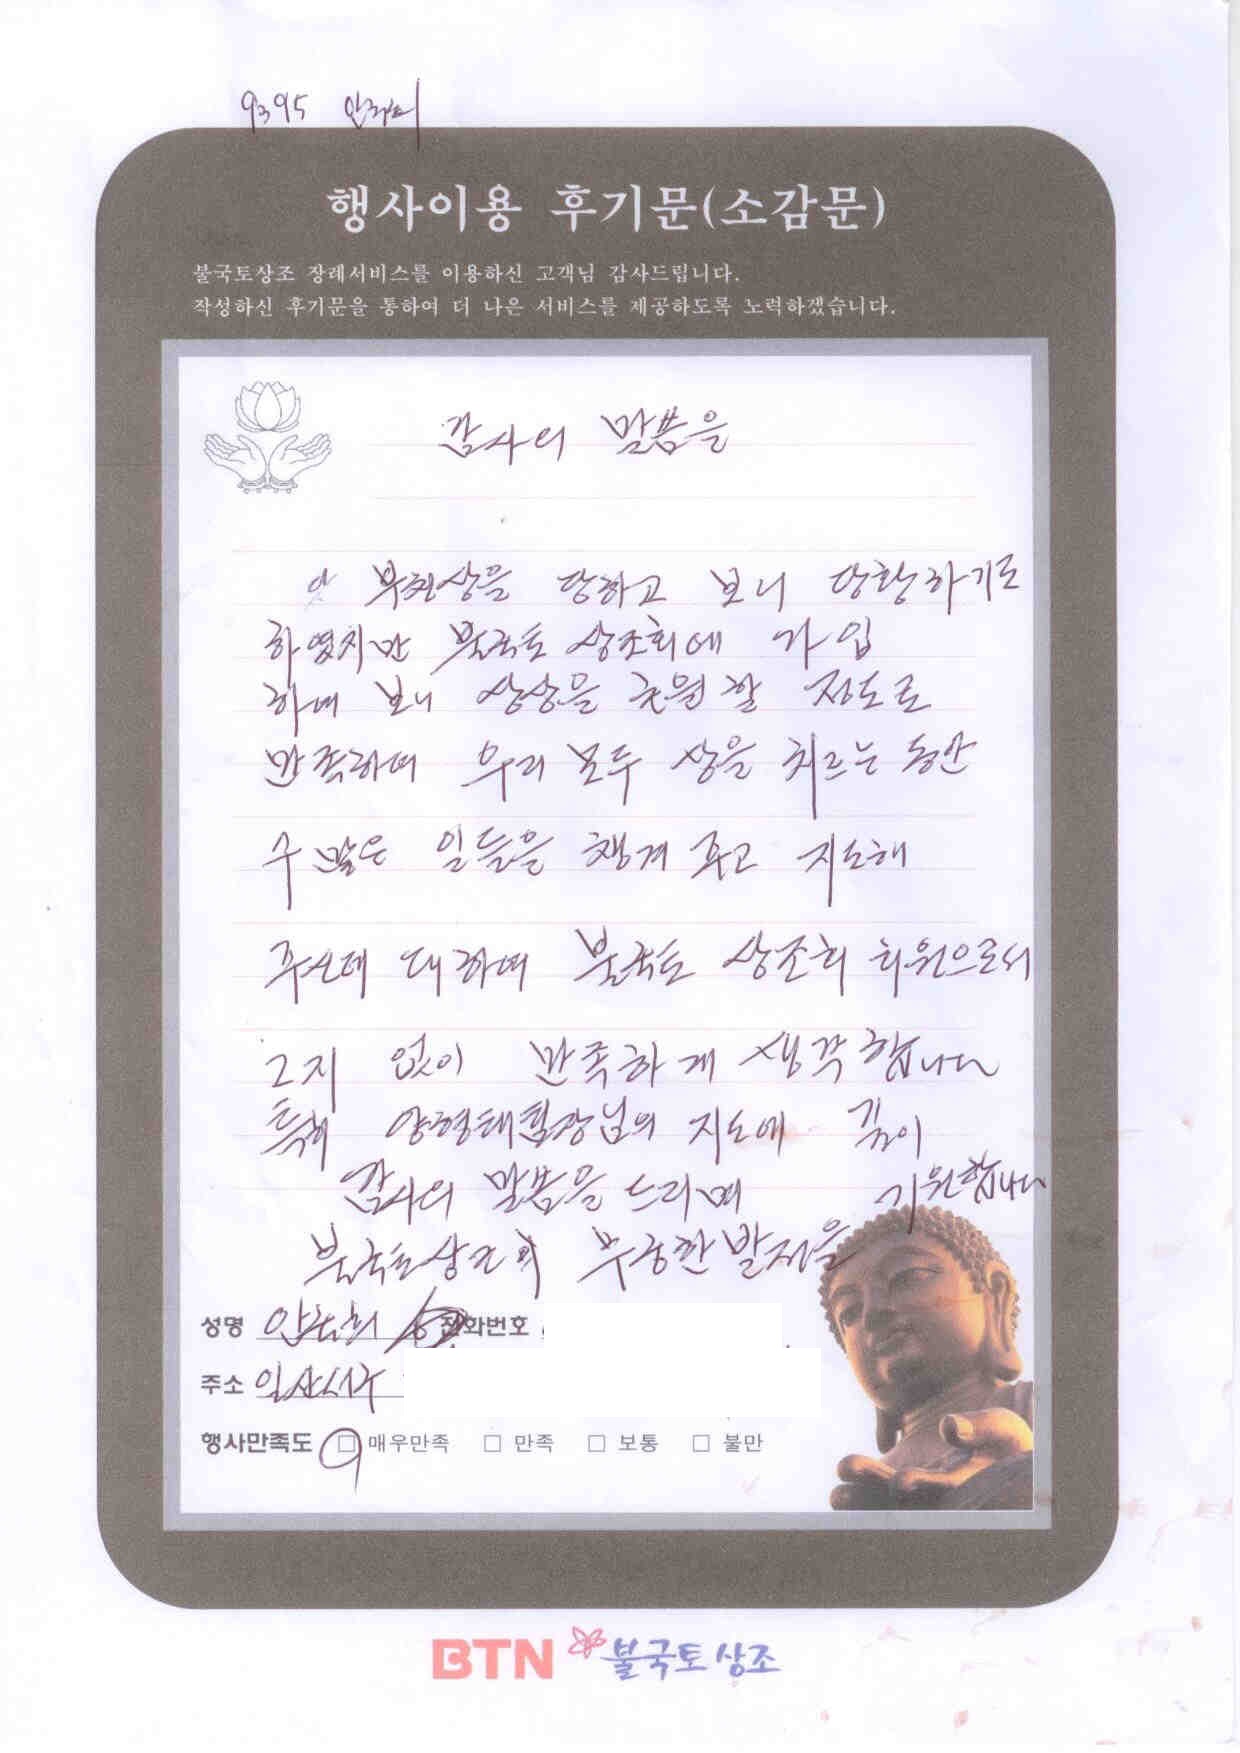 9395
행사이용 후기문(소감문)
불국토상조 장례서비스를 이용하신 고객님 감사드립니다.
작성하신 후기문을 통하여 더 나은 서비스를 제공하도록 노력하겠습니다.
감사의 말씀을
부친상을 당하고 보니 당황하기도
하였지만 불국토 상조회에 가입
하여 보니 상상을 초월할 정도로
만족하며 우리 모두 상을 치르는 동안
수 많은 일들을 챙겨 주고 지도해
주신데 대하여 불국토 상조회 회원으로서
그지 없이 만족하게 생각합니다
특히 양형태팀장님의 지도에 깊이
감사의 말씀을 드리며 기원합니다
불국토상조회 무궁한 발전을
성명 전화번호
주소 일산서구
행사만족도 □ 매우만족 □ 만족 □ 보통 □ 불만
BTN 불국토상조